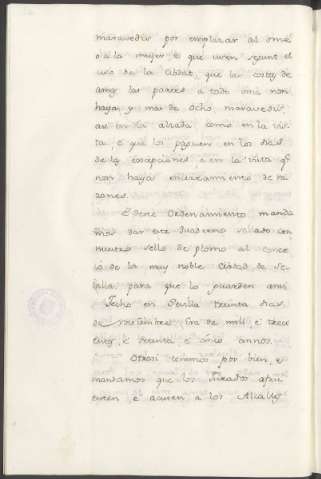 maravedis por emplazar al ome
o a la muger e que uiren segunt el
uso de la Cibdat, que las costas de
amas las partes a todo mas non
haya y mas de ocho maravedis,
asi en la alzada como en la vis-
ta, e que lo paguen en los dias
de las excepciones e en la vista qe
non haya encerramiento de ra
zones.
E deste Ordenamiento manda
mos dar este quaderno sellado con
nuestro sello de plomo al conce
jo de la muy noble Cibdad de Se-
villa, para que lo guarden ansi
Fecho en Sevilla treinta dias
de noviembre, Era de mill e trecei
entos e setenta e cinco annos.
Otrosi tenemos por bien, e
mandamos que los Jurados apri
cien e acucien a los Alcalles